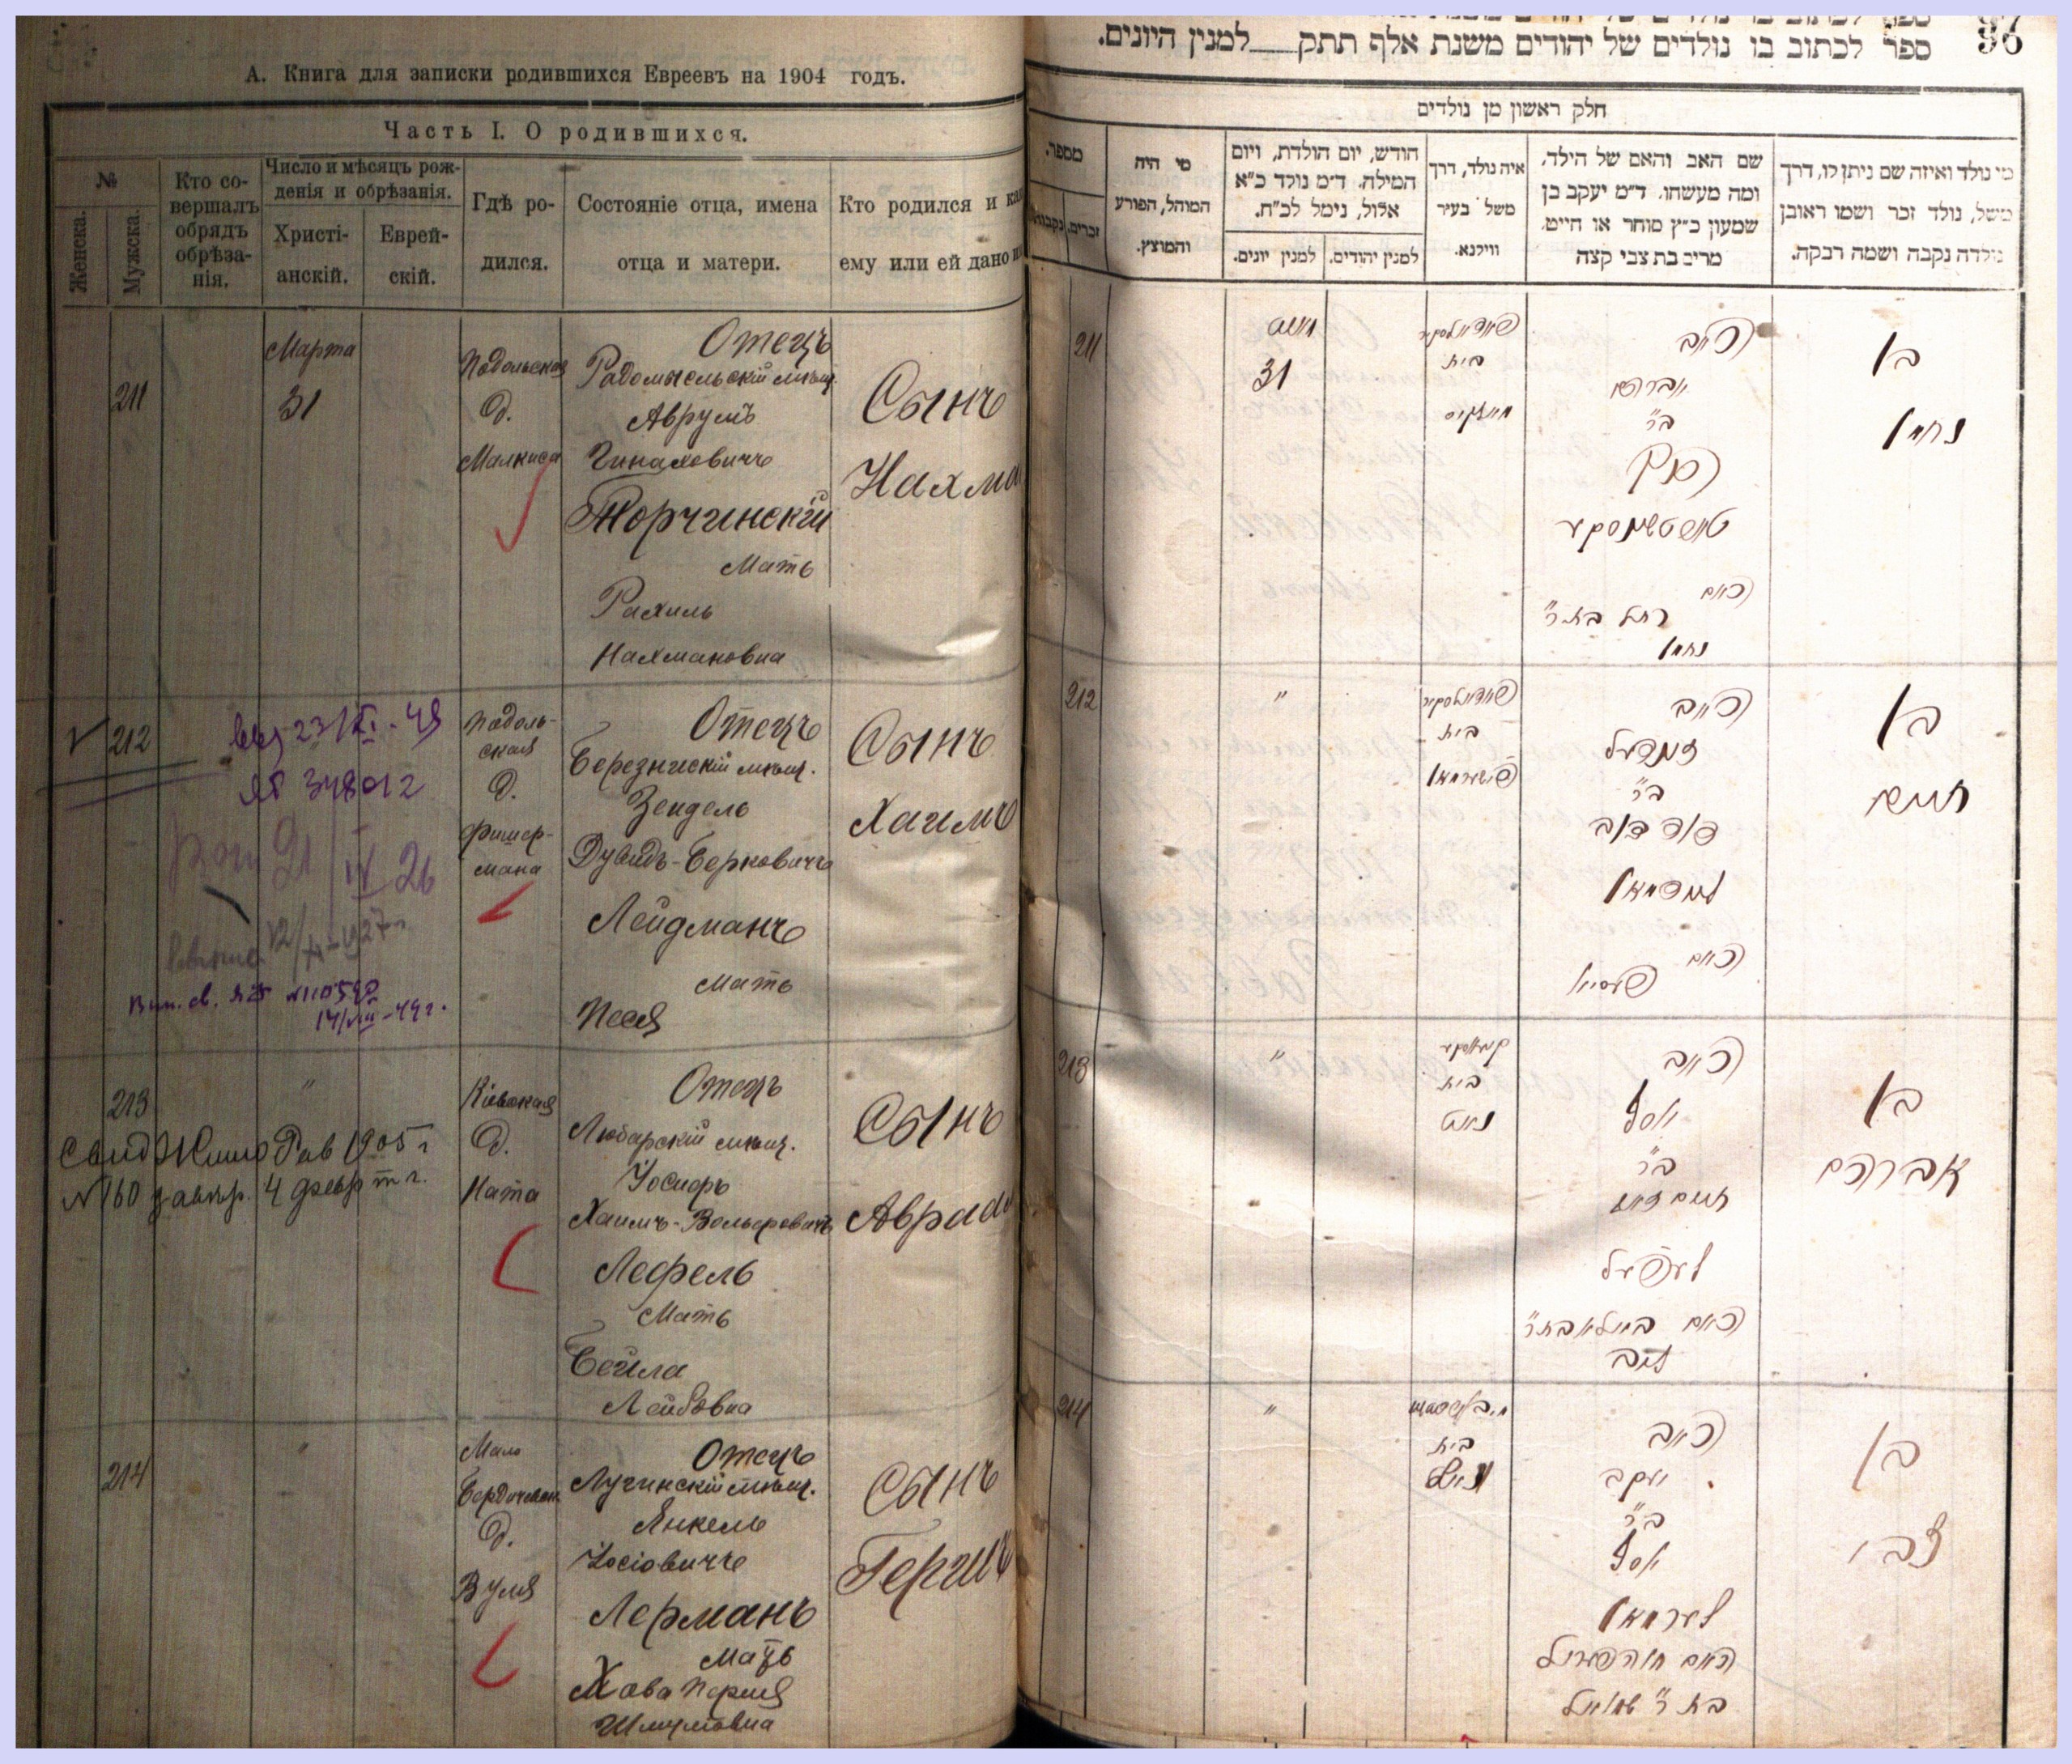 А. Книга для записки родившихся Евреевъ на 1904 годъ.
Часть I. О родившихся.
№
Женска.
Мужска.
Кто со-
вершалъ
обрядъ
обрѣза-
нія.
Число и мѣсяцъ рож-
денія и обрѣзанія.
Христі-
анскій.
Еврей-
скій.
Гдѣ ро-
дился.
Состояніе отца, имена
отца и матери.
Кто родился и ка
ему или ей дано
211
Марта
31
Подольская
д.
Малкиса
Отецъ
Радомысльскій мѣщ.
Аврумъ
Пинаховичъ
Торчинскій
Мать
Рахиль
Нахмановна
Сынъ
Нахма
212
23/XI-48
348012
21/IV 26
12/XI-1927 г.
№110590
14/VIII-44г.
Подоль-
ская
д.
Фишер-
мана
Отецъ
Березнискій мѣщ.
Зендель
Дувидъ-Берковичъ
Лейдманъ
Мать
Песя
Сынъ
Хаимъ
213
"
Свид
Рав 1905 г
№160
4 февр т г.
Кіевская
д.
Ната
Отецъ
Любарскій мѣщ.
Іосифъ
Хаимъ-Вольфовичъ
Лефель
Мать
Бейла
Лейбовна
Сынъ
Аврам
214
"
Мало
Бердичевск
д.
Вуля
Отецъ
Лугинскій мѣщ.
Янкель
Іосіовичъ
Лерманъ
Мать
Хава Перля
Шмулевна
Сынъ
Гершъ
ספר לכתוב בו נולדים של יהודים משנת אלף תתק למנין היונים.
חלק ראשון מן נולדים
מספר.
זכרים.
מי היה
המוהל, הפורע
והמוצץ.
חודש, יום הולדת, ויום
המילה. ד״מ נולד כ״א
אלול, נימל לכ״ח.
למנין יונים.
למנין יהודים.
איה נולד, דרך
משל בעיר
ווילנא.
שם האב והאם של הילד,
ומה מעשהו. ד״מ יעקב בן
שמעון כ״ץ סוחר או חייט,
מרים בת צבי קצה
מי נולד ואיזה שם ניתן לו, דרך
משל, נולד זכר ושמו ראובן
נולדה נקבה ושמה רבקה.
211
מארט
31
פאדאלסקיי
בית
מאלקיס
האב
אברהם
ב״ר
פנחס
טארטשינסקי
האם
רחל בת ר״
נחמן
בן
נחמן
212
"
פאדאלסקיי
בית
פישערמאן
האב
זענדעל
ב״ר
דוד דוב
ליידמאן
האם
פעסיא
בן
חיים
213
"
בית
נאטא
האב
יוסף
ב״ר
חיים זאב
לעפעל
האם ביילא בת ר״
ליב
בן
אברהם
214
"
בית
האב
יעקב
ב״ר
יוסף
לערמאן
האם חוה פערל
בת ר״ שמואל
בן
צבי